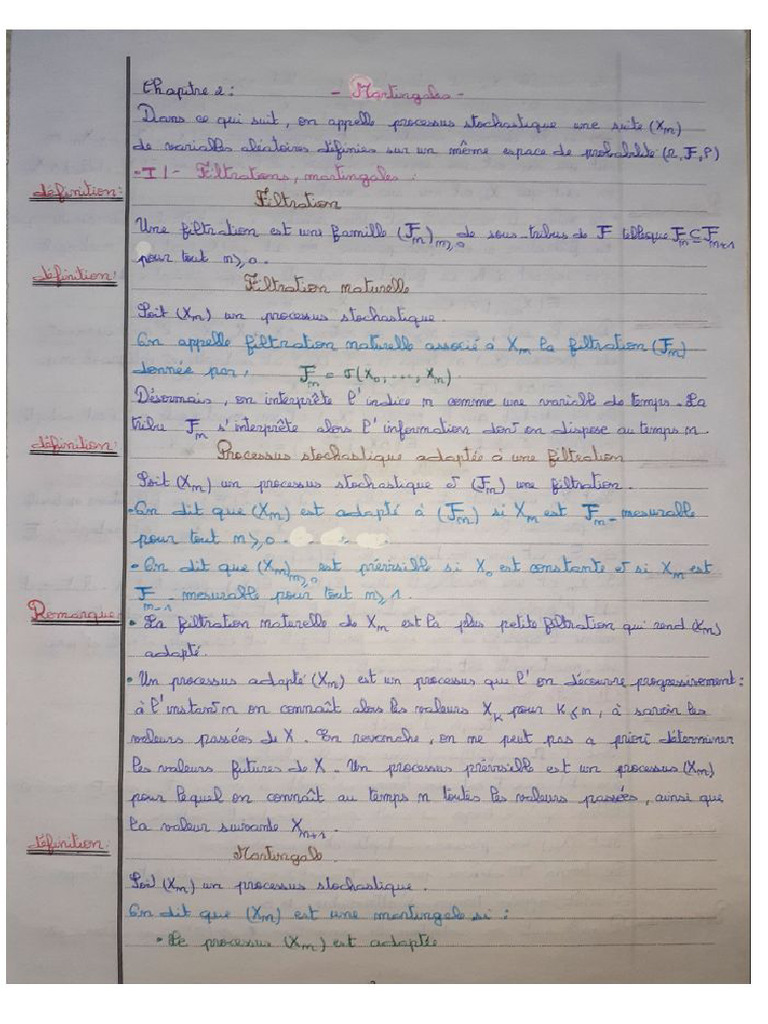 Chapitre 2: - Martingales -
Dans ce qui suit, on appelle processus stochastique une suite (Xn)
de variables aléatoires définies sur un même espace de probabilité (Ω, F, P)
- I / - Filtrations, martingales.
définition: Filtration
Une filtration est une famille (Fn)n≥0 de sous-tribus de F telle que Fn ⊆ Fn+1
pour tout n≥0.
définition: Filtration naturelle
Soit (Xn) un processus stochastique.
On appelle filtration naturelle associé à Xn la filtration (Fn)
donnée par: Fn = σ(X0, ..., Xn).
Désormais, on interprète l'indice n comme une variable de temps. La
tribu Fn s'interprète alors l'information dont on dispose au temps n.
définition: Processus stochastique adaptée à une filtration
Soit (Xn) un processus stochastique et (Fn) une filtration.
• On dit que (Xn) est adapté à (Fn) si Xn est Fn-mesurable
pour tout n≥0
• On dit que (Xn)n≥0 est prévisible si X0 est constante et si Xn est
Fn-1 mesurable pour tout n≥1.
Remarque: • La filtration naturelle de Xn est la plus petite filtration qui rend (Xn)
adapté.
• Un processus adapté (Xn) est un processus que l'on découvre progressivement:
à l'instant n on connaît alors les valeurs Xk pour k≤n, à savoir les
valeurs passées de X. En revanche, on ne peut pas a priori déterminer
les valeurs futures de X. Un processus prévisible est un processus (Xn)
pour lequel on connaît au temps n toutes les valeurs passées, ainsi que
la valeur suivante Xn+1.
définition: Martingale.
Soit (Xn) un processus stochastique.
On dit que (Xn) est une martingale si:
• Le processus (Xn) est adaptée